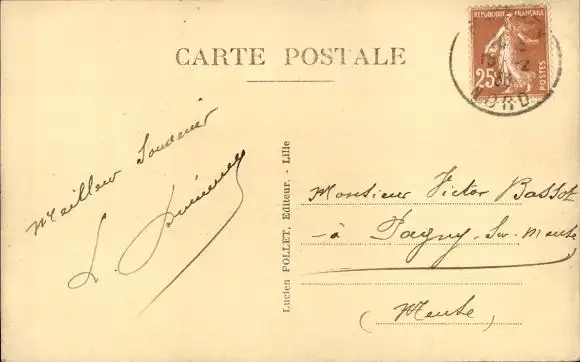 CARTE POSTALE
REPUBLIQUE FRANÇAISE
25c
POSTES
NORD
Meilleur Souvenir
L.
Lucien POLLET, Editeur. - Lille
Monsieur Victor Bassot
- à Pagny-Sur-Meuse
(Meuse)